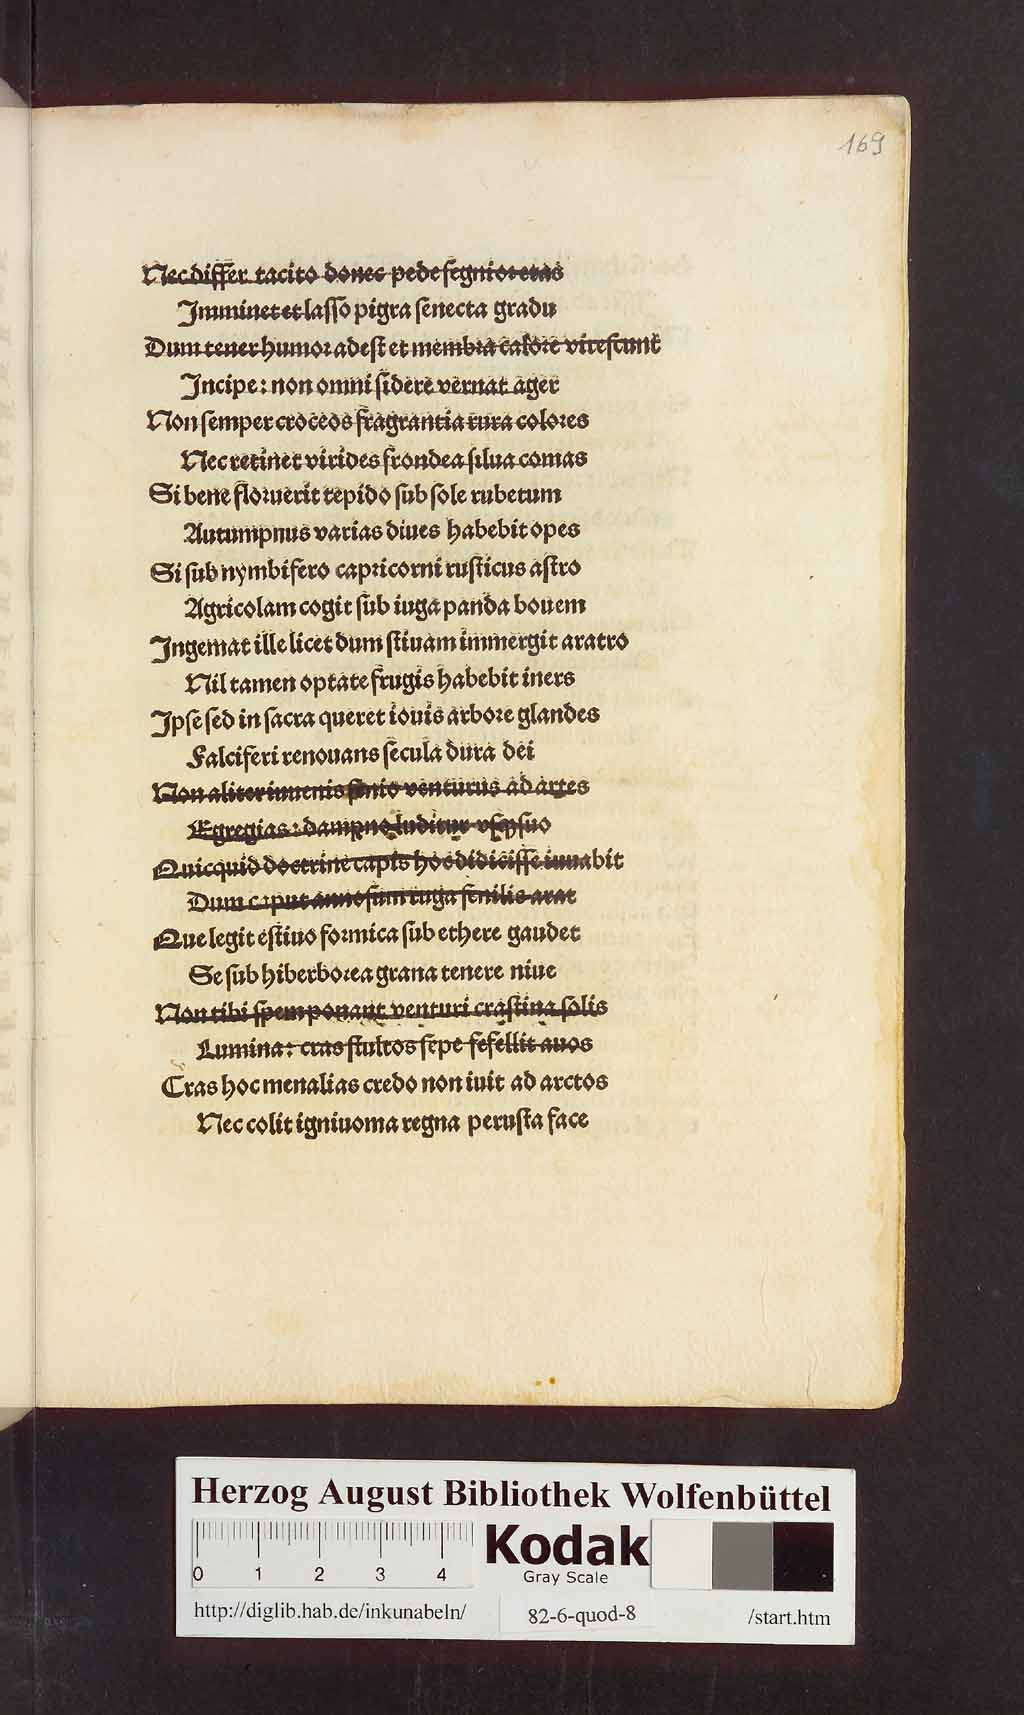 169
Nec differ tacito donec pede segnior etas
Imminet et lasso pigra senecta gradu
Dum tener humor adest et membra calore virescunt
Incipe: non omni sidere vernat ager
Non semper croceos fragrantia rura colores
Nec retinet virides frondea silua comas
Si bene floruerit tepido sub sole rubetum
Autumpnus varias diues habebit opes
Si sub nymbifero capricorni rusticus astro
Agricolam cogit sub iuga panda bouem
Ingemat ille licet dum stiuam immergit aratro
Nil tamen optate frugis habebit iners
Ipse sed in sacra queret iouis arbore glandes
Falciferi renouans secula dura dei
Non aliter iuuenis senio venturus ad artes
Egregias: dampno luditur vsq; suo
Quicquid doctrine capis hoc didicisse iuuabit
Dum caput annosum ruga senilis arat
Que legit estiuo formica sub ethere gaudet
Se sub hiberborea grana tenere niue
Non tibi spem ponant venturi crastina solis
Lumina: cras stultos sepe fefellit auos
Cras hoc menalias credo non iuit ad arctos
Nec colit igniuoma regna perusta face
Herzog August Bibliothek Wolfenbüttel
0 1 2 3 4
Kodak
Gray Scale
http://diglib.hab.de/inkunabeln/ 82-6-quod-8 /start.htm